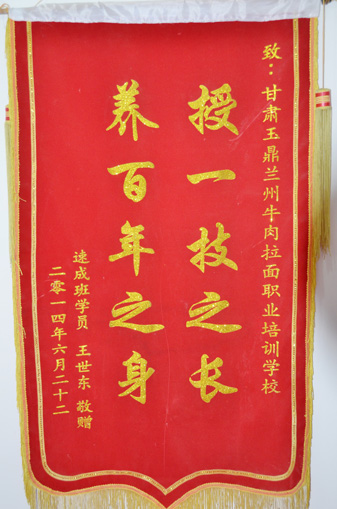 致：甘肃玉鼎兰州牛肉拉面职业培训学校
授一技之长
养百年之身
速成班学员 王世东 敬赠
二零一四年六月二十二